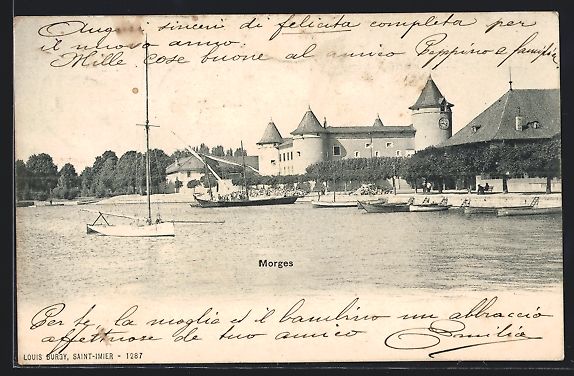 Auguri sinceri di felicita completa per
il nuovo anno.
Mille cose buone al amico Peppino e famiglia
Morges
Per te, la moglia e il bambino un abbraccio
affettuose de tuo amico
LOUIS BURGY, SAINT-IMIER - 1287